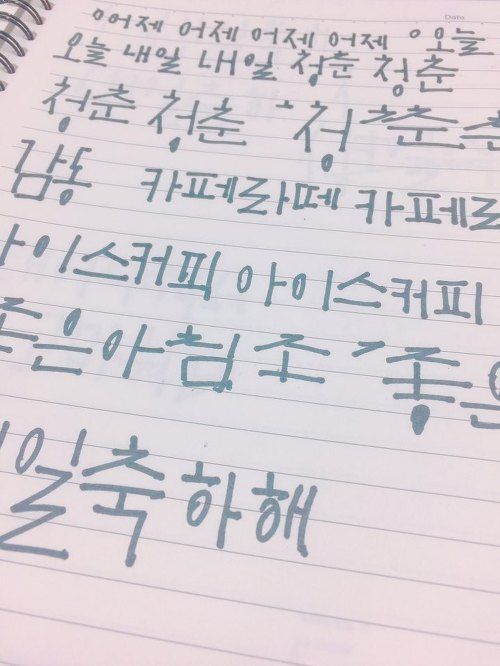 어제 어제 어제 어제 오늘 Date
오늘 내일 내일 청춘 청춘
청춘 청춘 청춘춘
감동 카페라떼 카페
아이스커피 아이스커피
좋은아침 조 좋은
일축하해